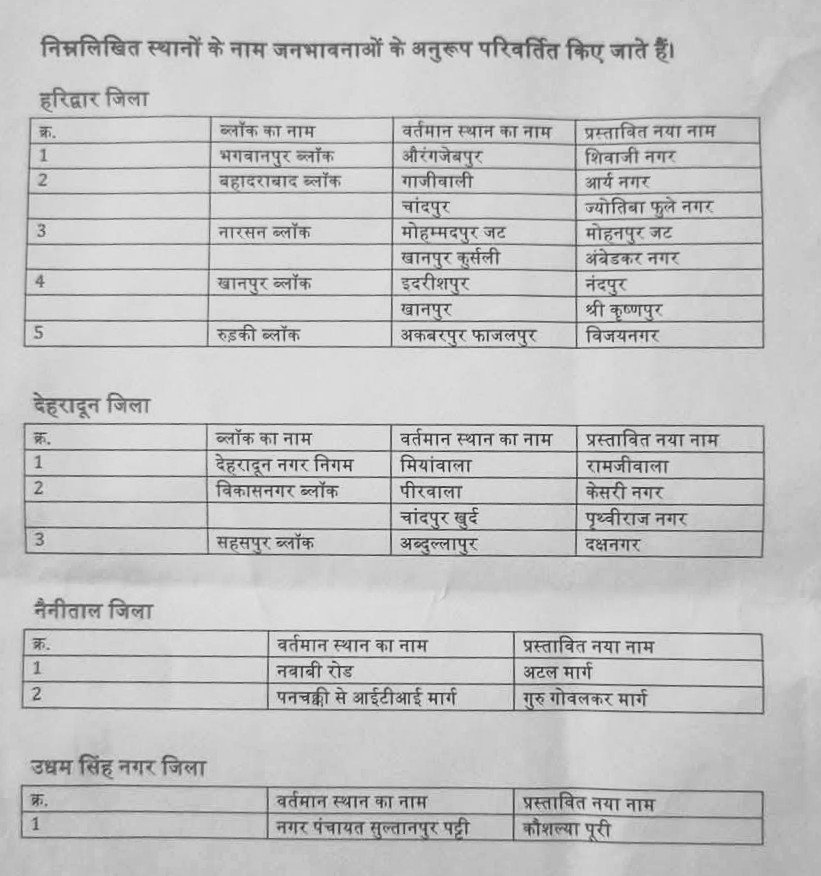 निम्नलिखित स्थानों के नाम जनभावनाओं के अनुरूप परिवर्तित किए जाते हैं।
हरिद्वार जिला
क्र. ब्लॉक का नाम वर्तमान स्थान का नाम प्रस्तावित नया नाम
1 भगवानपुर ब्लॉक औरंगजेबपुर शिवाजी नगर
2 बहादराबाद ब्लॉक गाजीवाली आर्य नगर
चांदपुर ज्योतिबा फुले नगर
3 नारसन ब्लॉक मोहम्मदपुर जट मोहनपुर जट
खानपुर कुर्सली अंबेडकर नगर
4 खानपुर ब्लॉक इदरीशपुर नंदपुर
खानपुर श्री कृष्णपुर
5 रुड़की ब्लॉक अकबरपुर फाजलपुर विजयनगर
देहरादून जिला
क्र. ब्लॉक का नाम वर्तमान स्थान का नाम प्रस्तावित नया नाम
1 देहरादून नगर निगम मियांवाला रामजीवाला
2 विकासनगर ब्लॉक पीरवाला केसरी नगर
चांदपुर खुर्द पृथ्वीराज नगर
3 सहसपुर ब्लॉक अब्दुल्लापुर दक्षनगर
नैनीताल जिला
क्र. वर्तमान स्थान का नाम प्रस्तावित नया नाम
1 नवाबी रोड अटल मार्ग
2 पनचक्की से आईटीआई मार्ग गुरु गोवलकर मार्ग
उधम सिंह नगर जिला
क्र. वर्तमान स्थान का नाम प्रस्तावित नया नाम
1 नगर पंचायत सुल्तानपुर पट्टी कौशल्या पूरी